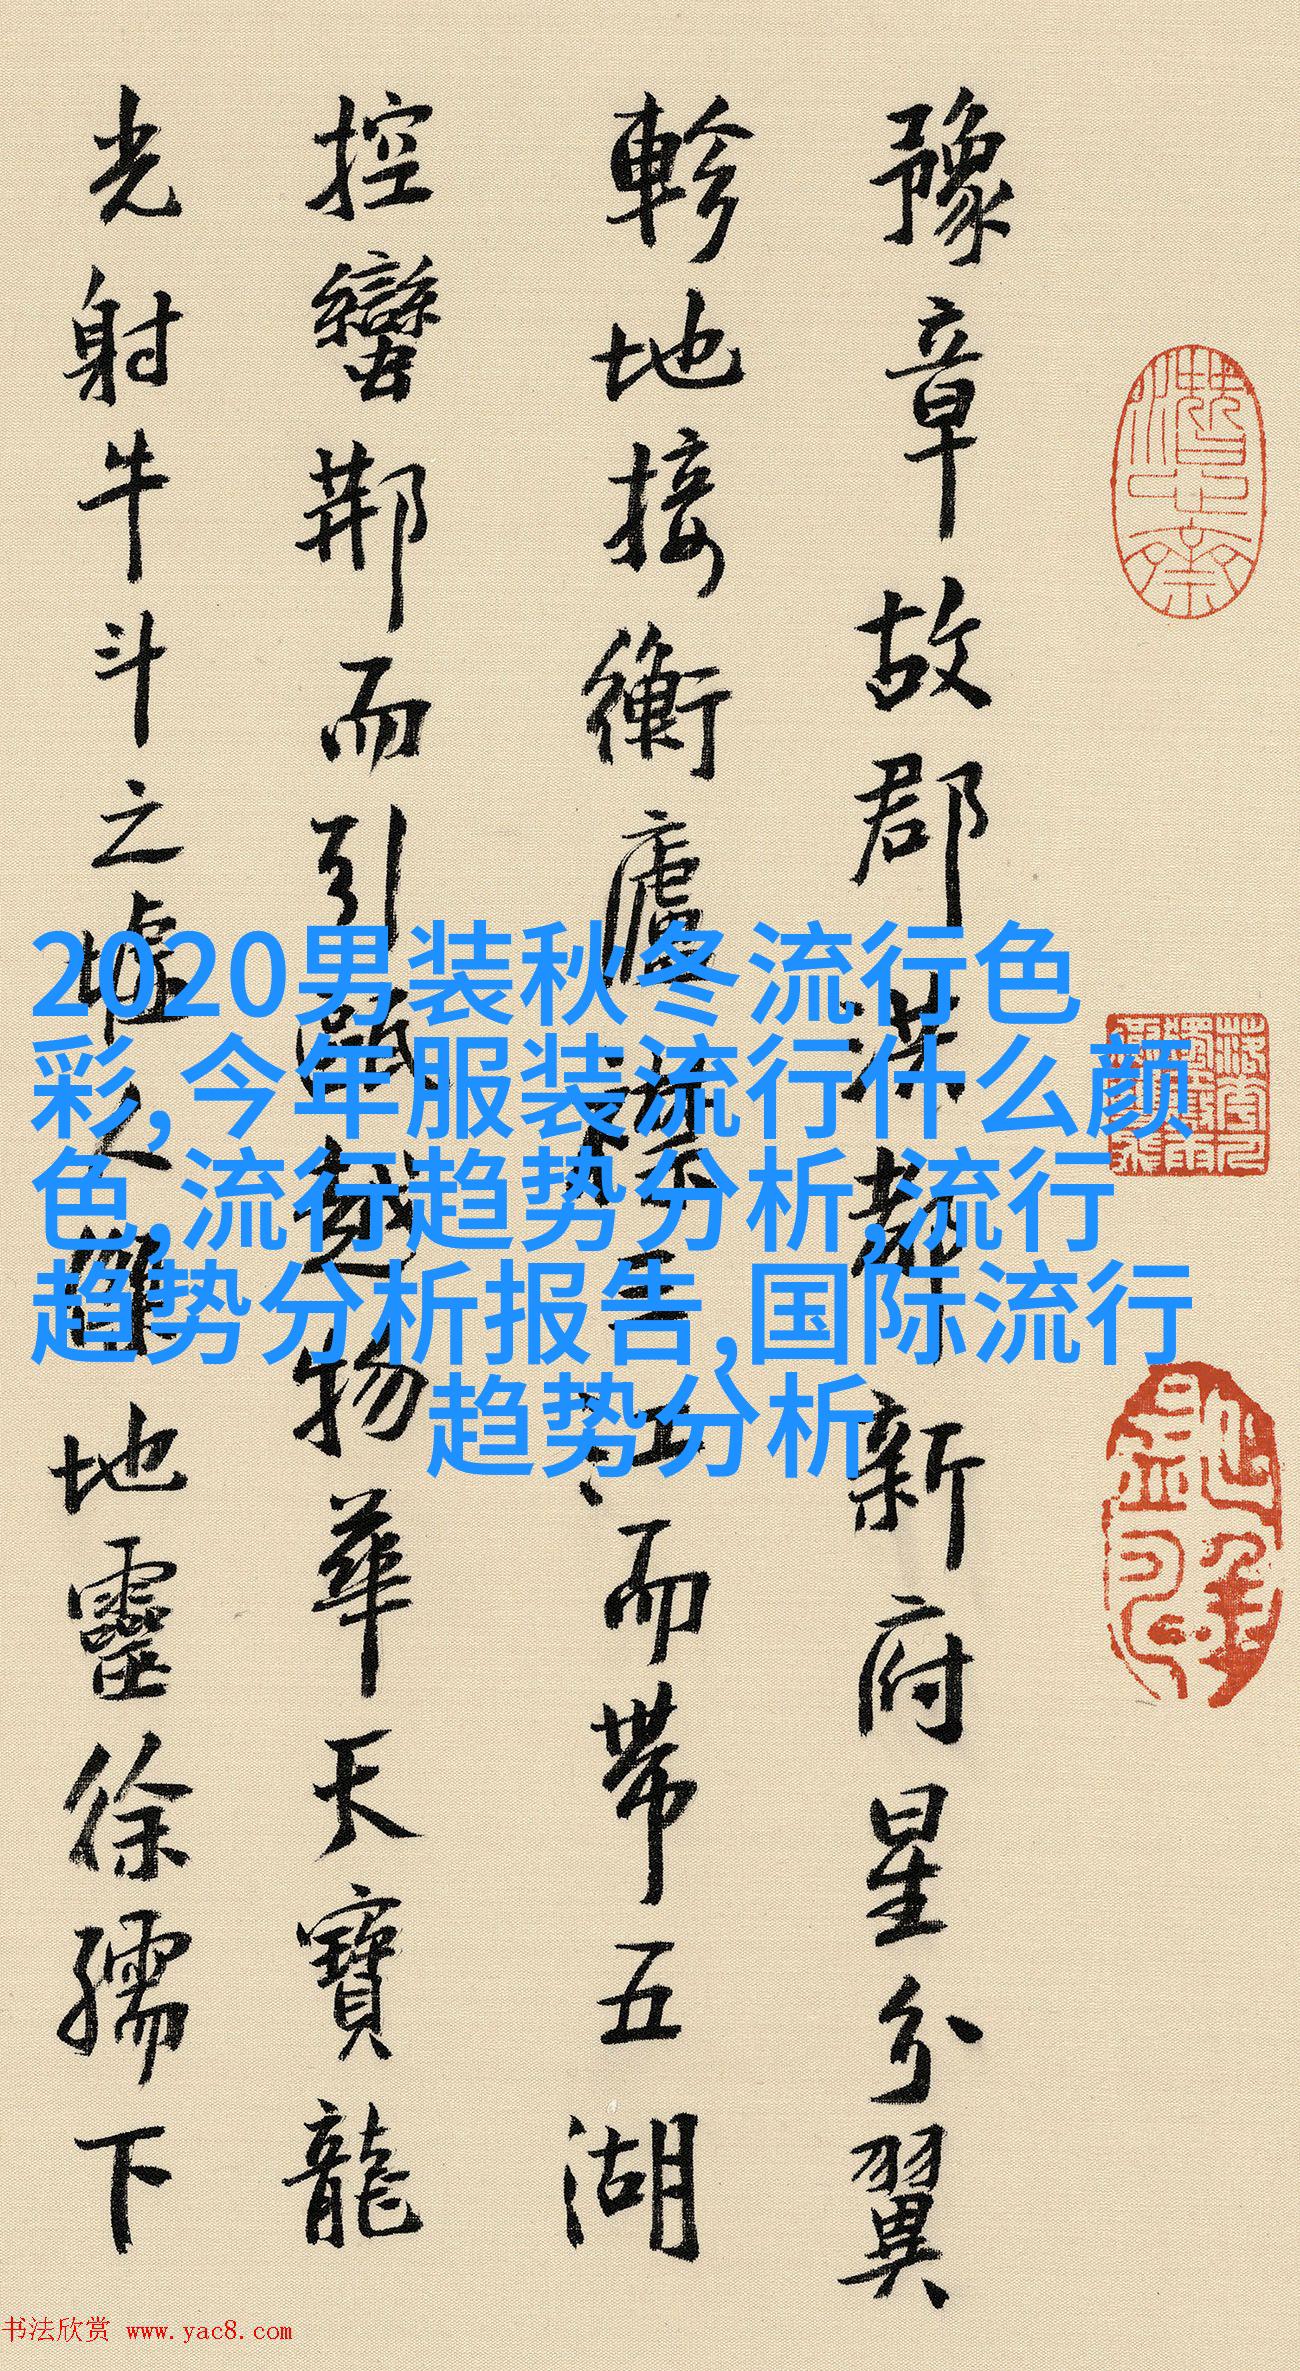 豫章故郡洪都新府星分翼
軫地接衡廬襟三江而帶五湖
控蠻荆而引甌越物華天寶龍
光射牛斗之墟人傑地靈徐孺下
2020男装秋冬流行色
彩,今年服装流行什么颜
色,流行趋势分析,流行
趋势分析报告,国际流行
趋势分析
书法欣赏 www.yac8.com